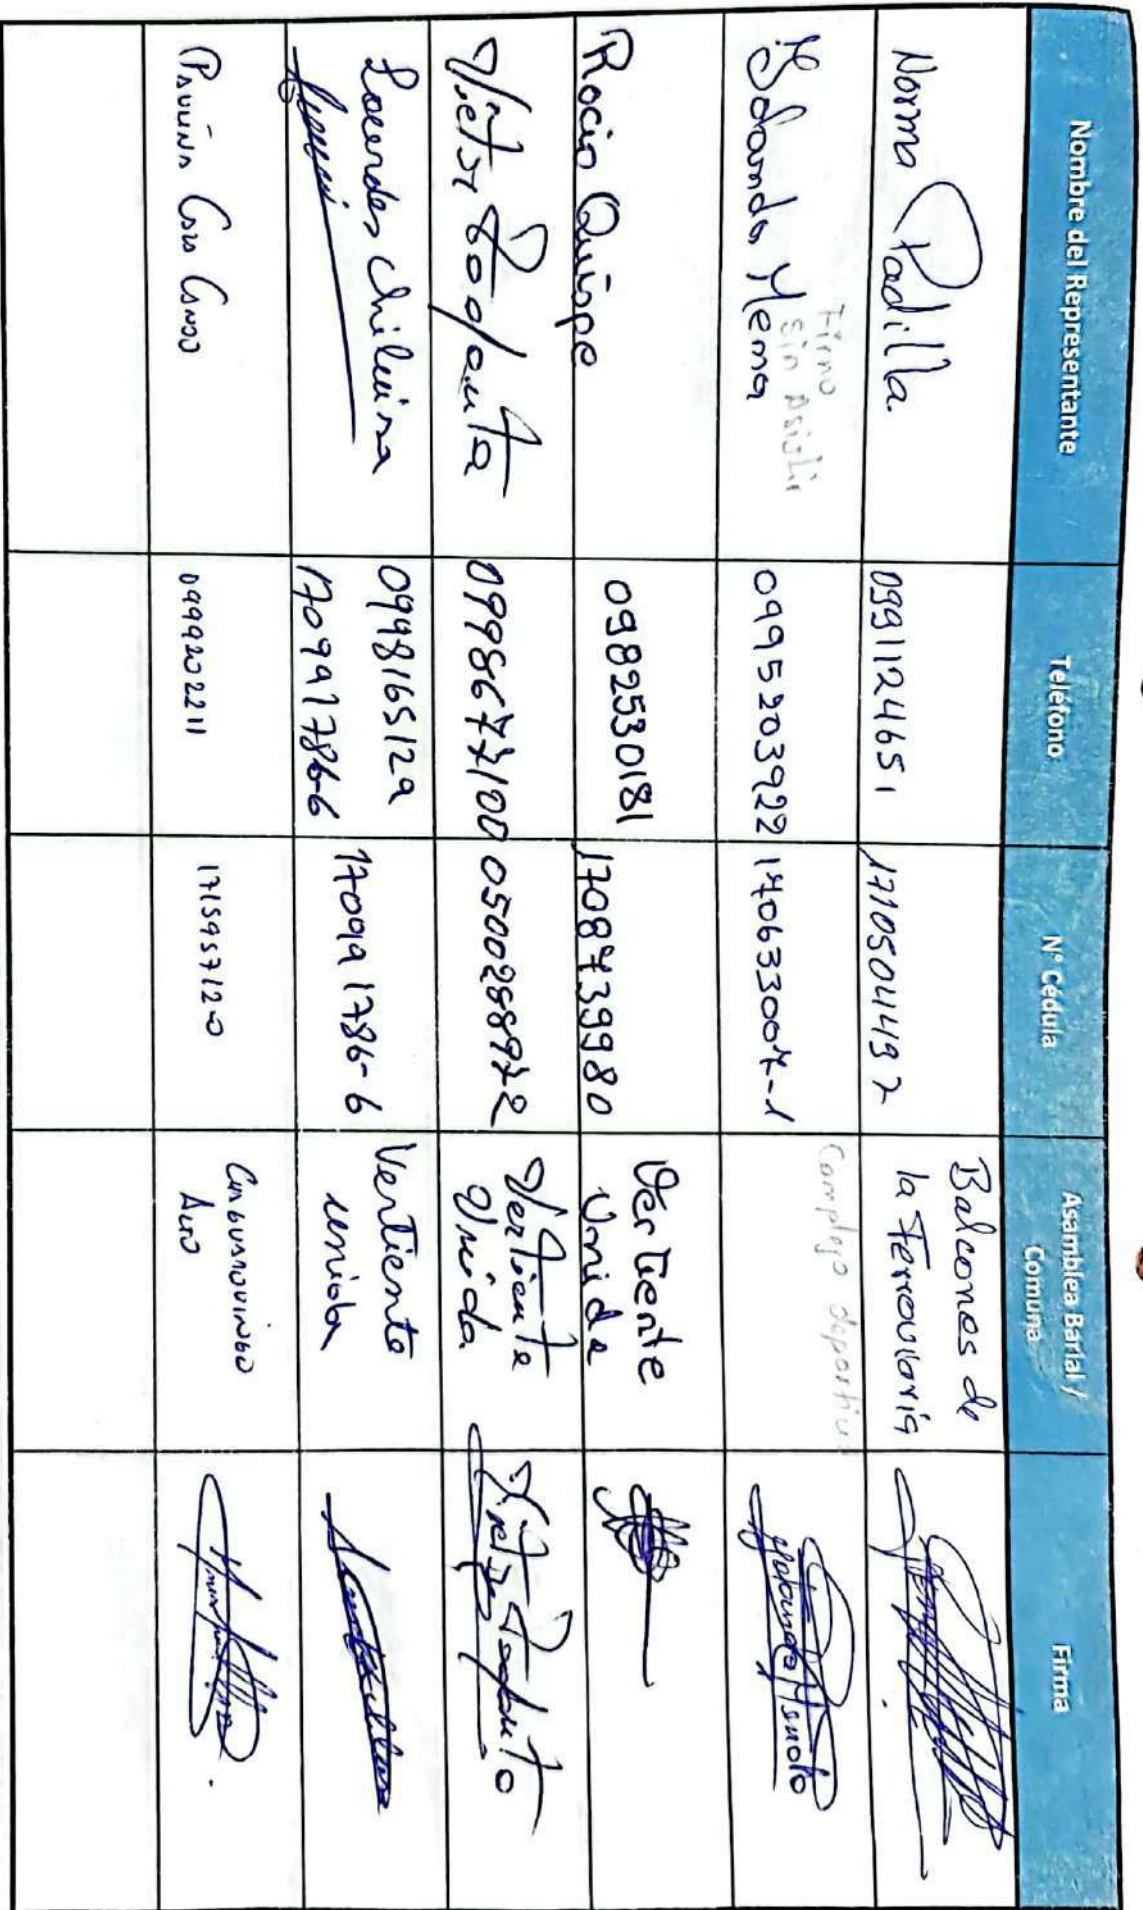 Nombre del Representante
Teléfono
N° Cédula
Asamblea Barial /
Comuna
Firma
Norma Padilla
0991124651
1710504497
Balcones de
la Ferroviaria
firmo
sin Asistir
Yolanda Mena
0995203922
170633007-1
Complejo deportivo
Rocio Quispe
0982530181
1708739980
Vertiente
Unida
Victor
0998677100
0500288972
Vertiente
Unida
Lourdes Chiluisa
0998165129
170991786-6
170991786-6
Vertiente
unida
0999202211
1715957120